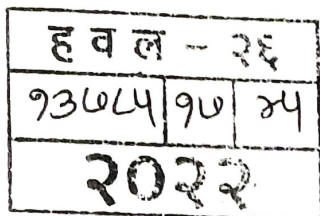 ह व ल - २६
१३७८५ १७ ४५
२०२२